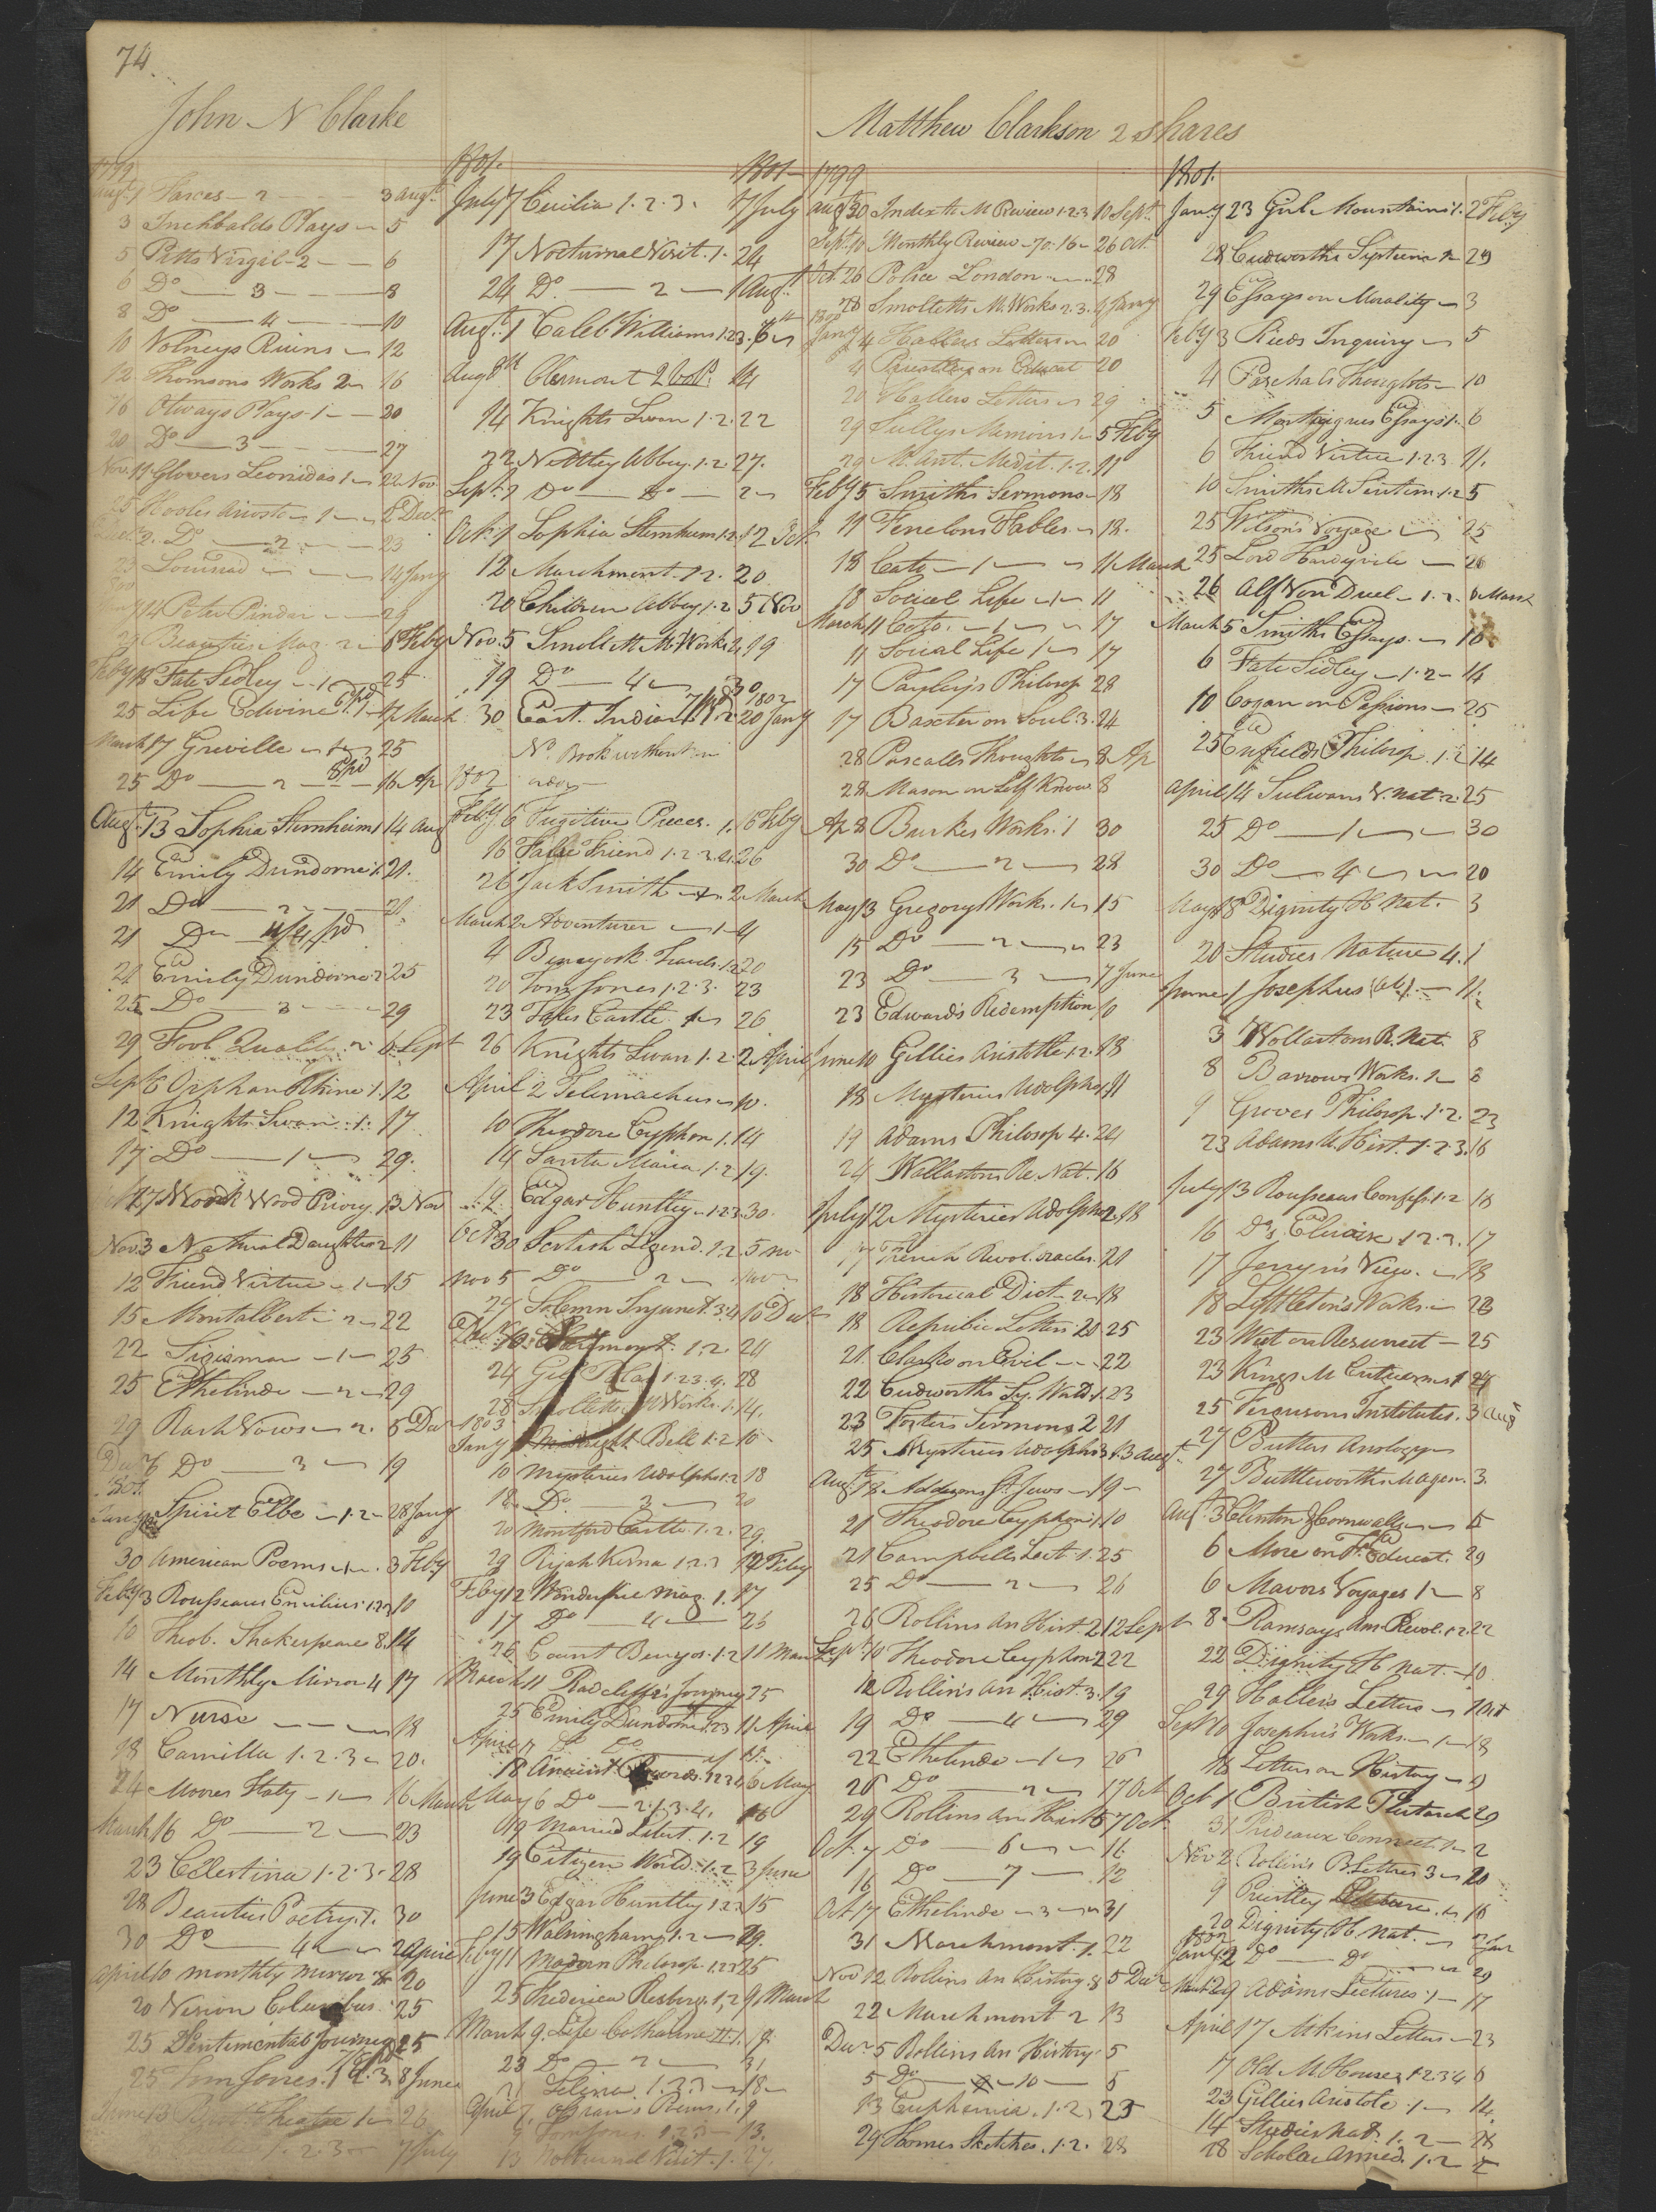 74.
John N Clarke
1799
Augt 1 Sarces - 2 - 3 Augt
3 Inchbalds Plays - 5
5 Pitts Virgil - 2 - 6
6 Do - 3 - 8
8 Do - 4 - 10
10 Volneys Ruins - 12
12 Thomsons Works 2 - 16
16 Otways Plays 1 - 20
20 Do - 3 - 27
Nov. 11 Glovers Leonidas 1 - 22 Nov.
25 Hooles Ariosto - 1 - 2 Decr
Decr 2. Do - 2 - 23
23 Lousiad - 14 Jany
14 Peter Pindar - 29
29 Beauties Mag. 2 - 6 Feby
Feby 18 Fate Sedley - 1 - 25
25 Life Edwin 1 - 17 March
March 17 Greville - 1 - 25
25 Do - 2 - 16 Ap
Augt 13 Sophia Sternheim 1 14 Aug
14 Emily Dundorne 1. 21.
21 Do - 2 - 21.
21 Do 4/4 pd
21 Emily Dundorne 2 25
25 Do - 3 - 29
29 Fool Quality 2 6 Sept
Sept 6 Orphan Rhine 1. 12
12 Knights Swan 1. 17
17 Do - 1 - 29.
27 Wood Priory. 13 Nov
Nov. 3 Natural Daughter 2 11
12 Friend Virtue - 1 - 15
15 Montalbert - 2 - 22
22 Sigismar - 1 - 25
25 Ethelinde - 2 - 29
29 Rash Vows - 2. 6 Decr
Decr 6 Do - 3 - 19
1801
Jany Spirit Elbe - 1.2 - 28 Jany
30 American Poems - 1 - 3 Feby
Feby 3 Rousseaus Emilius 1.2.3 10
10 Theob. Shakespeare 8. 14
14 Monthly Mirror 4 17
17 Nurse - 18
18 Camilla 1.2.3 - 20.
24 Moores Italy - 1 - 16 March
March 16 Do - 2 - 23
23 Celestina 1.2.3. 28
28 Beauties Poetry. 1. 30
30 Do - 4 - 2 April
April 10 monthly mirror 8 20
20 Vision Columbus 25
25 Sentimental Journey 25
25 Tom Jones. 1.2.3. 8 June
June 13 Theatre 1 - 26
1.2.3 - 7 July
1801.
July 7 Cicilia 1.2.3. 17 July
17 Nocturnal Visit. 1. 24
24 Do - 2 - 1 Augt
Augt 1 Caleb Williams 1.2.3. 6
Aug 8th Clermont 2 Vol. 14
14 Knights Swan 1.2. 22
22 Nettley Abbey. 1.2 27.
Sept. 2 Do - Do - 2
Oct. 1 Sophia Sternheim 1.2. 12 Oct.
12 Marchmont. 1.2. 20
20 Children Abbey 1.2 5 Nov
Nov. 5 Smollett M Works 2 19
19 Do - 4 - 30
30 East Indian 1.2. 20 Jany
No Book without an
order
1802
Feby 6 Fugitive Pieces. 1. 16 Feby
16 False Friend 1.2.3.4. 26
26 Jack Smith - 2 March
March 2 Adventurer - 1 - 4
4 Benyosk. Travels. 1.2 20
20 Tom Jones 1.2.3. 23
23 Tales Castle. 1 - 26
26 Knights Swan 1.2. 2 April
April 2 Telemachus - 10.
10 Theodore Cyphon 1. 14
14 Santa Maria 1.2 19.
19. Edgar Huntley. 1.2.3. 30.
Oct 30 Scotish Legend. 1.2 5 no
nov 5 Do 2 -
24 Solemn Injunct. 3.4 10 Decr
Dec. 10. Clermont. 1.2. 24
24 Gil Blas 1.2.3.4. 28
28 Smolletts M Works. 1. 14.
1803
Jany Midnight Bell 1.2 10
10 mysteries Udolpho 1.2 18
18. Do - 3 - 20
20 Montford Castle. 1.2. 29
29 Rijah Kisna 1.2.3 12 Feby
Feby 12 Wonderful mag. 1. 17
17 Do - 4 - 26
26 Count Benyos. 1.2 11 Mar
March 11 Radcliffe's Journey 25
25 Emily Dundorne 1.2.3 11 April
April 11 Do Do
18 Ancient Records. 1.2.3.4 6 May
May 6 Do - 2.1.3.4. 16
19 Married Libert. 1.2 19
19 Citizen World. 1.2 3 June
June 3 Edgar Huntley 1.2.3 15
15 Walsingham 1.2 - 29.
Feby 11 modern Philosop. 1.2.3 25
25 Frederica Risberg. 1.2 9 March
March 9. Life Catharine II. 1. 9.
23 Do - 2 - 31
Selina. 1.2.3 - 18
April 7. Ossian's Poems. 1. 9
9 Tom Jones. 1.2.3 - 13.
13 Nocturnal Visit. 1. 27.
Matthew Clarkson 2 shares
1799
Augt 30 Index to M Review 1.2.3 10 Sept.
Sept. 10 Monthly Review - 70.16 - 26 Oct.
Oct. 26 Police London - 28
28 Smolletts M. Works 2.3. 4 Jany
1800
Jany 4 Hallers Letters - 20
4 Priestley on Educat 20
20 Hallers Letters - 29
29 Sullys Memoirs 1 - 5 Feby
29 M. Ant. Medit. 1.2. 11
Feby 5 Smiths Sermons - 18
11 Fenelons Fables - 18.
18 Cato - 1 - 11 March
18 Social Life - 1 - 11
March 11 Cato. - 1 - 17
11 Social Life 1 - 17
17 Payley's Philosop 28
17 Baxter on Soul. 3. 24
28 Pascalls Thoughts - 8 Ap
28 Mason on Self Know 8
Ap 8 Burkes Works. 1 30
30 Do - 2 - 28
May 13 Gregorys Works. 1 - 15
15 Do - 2 - 23
23 Do - 3 - 7 June
23 Edward's Redemption 10
June 10 Gillies Aristotle 1.2. 18
18 Mysteries Udolpho 1 11
19 Adams Philosop 4. 24
24 Wollastons Re. Nat. 16
July 12 Mysteries Udolpho 2. 18
17 French Revol. oracles. 21
18 Historical Dict - 2 - 18
18 Repubic Letters 20 25
21. Clarke on Evil - 22
22 Cudworths Sy. World 1. 23
23 Fosters Sermons 2 21
25 Mysteries Udolpho 3 13 Augt
Augt 18 Addisons St. Jews - 19
21 Theodore Cyphon 1. 10
21 Campbells Lect. 1. 25
25 Do - 2 - 26
26 Rollins An Hist. 2 12 Sept
Sept 10 Theodore Cyphon 2 22
12 Rollin's An Hist. 3. 19
19 Do - 4 - 29
22 Ethelinde - 1 - 26
26 Do - 2 - 17 Oct
29 Rollins An Hist 5 7 Oct.
Oct. 7 Do - 6 - 16
16 Do - 7 - 12
Oct 17 Ethelinde - 3 - 31
31 Marchmont. 1. 22
Nov 12 Rollins An History. 8 5 Decr
22 Marchmont 2 13
Decr 5 Rollins An History 5
5 Do - 10 - 5
13 Euphemia. 1.2. 23
29 Homes Sketches. 1.2. 28
1801.
Jany 23 Gul. Mountains 1. 2 Feby
28 Cudworths Systema 2 29
29 Essays on Morality - 3
Feby 3 Rieds Inquiry - 5
4 Paschals Thoughts - 10
5 Montaignes Essays 1. 6
6 Friend Virtue 1.2.3 11.
10 Smiths M Sentim. 1.2 5
25 Wilson's Voyage - 25
25 Lord Hardyvile - 26
26 Alf Von Duel - 1.2. 6 March
March 5 Smiths Essays. - 10
6 Fate Sedley - 1.2 - 14
10 Cogan on Passions - 25
25 Enfields Philosop. 1.2 14
April 14 Sulivans V. Nat. 2. 25
25 Do - 1 - 30
30 Do - 4 - 20
May 18 Dignity H Nat. 3
20 Studies Nature 4. 1
June 1 Josephus - 11.
3 Wollastons R. Nat. 8
8 Barrows Works. 1 - 8
9 Groves Philosop. 1.2. 23
23 Adams U. Hist. 1.2.3. 16
July 13 Rousseaus Confess. 1.2 18
16 Do's Eloise 1.2.3. 17
17 Jenyn's View. - 18
18 Lyttleton's Works - 23
23 West on Resurrect - 25
23 Kings M Criticisms 1 24
25 Fergusons Institutes. 3 Aug
27 Butlers Analogy -
27 Buttleworths Magen. 3.
Augt 3 Clinton & Cornwallis - 6
6 More on Fe Educat. 29
6 Mavors Voyages 1 - 8
8 Ramsays Am Revol. 1.2 22
22 Dignity H Nat. - 10
29 Hallers Letters - 1 Oct
Sept 10 Josephus Works. - 1 - 18
18 Letters on History - 9
Oct 1 British Plutarch 29
31 Prideaux Connect. 1 - 2
Nov 2 Rollin's B. Lettres 3 - 20
9 Priestley - 16
20 Dignity H Nat. - 2 Jan
1802
Jany 2 Do - Do - 29
Mar. 29 Adams Lectures. 1 - 17
April 17 Aikins Letters - 23
7 Old M House. 1.2.3.4 6
23 Gillies Aristotle. 1 - 14
14 Studies Nat. 1.2 - 28
28 Scholar armed. 1.2 5